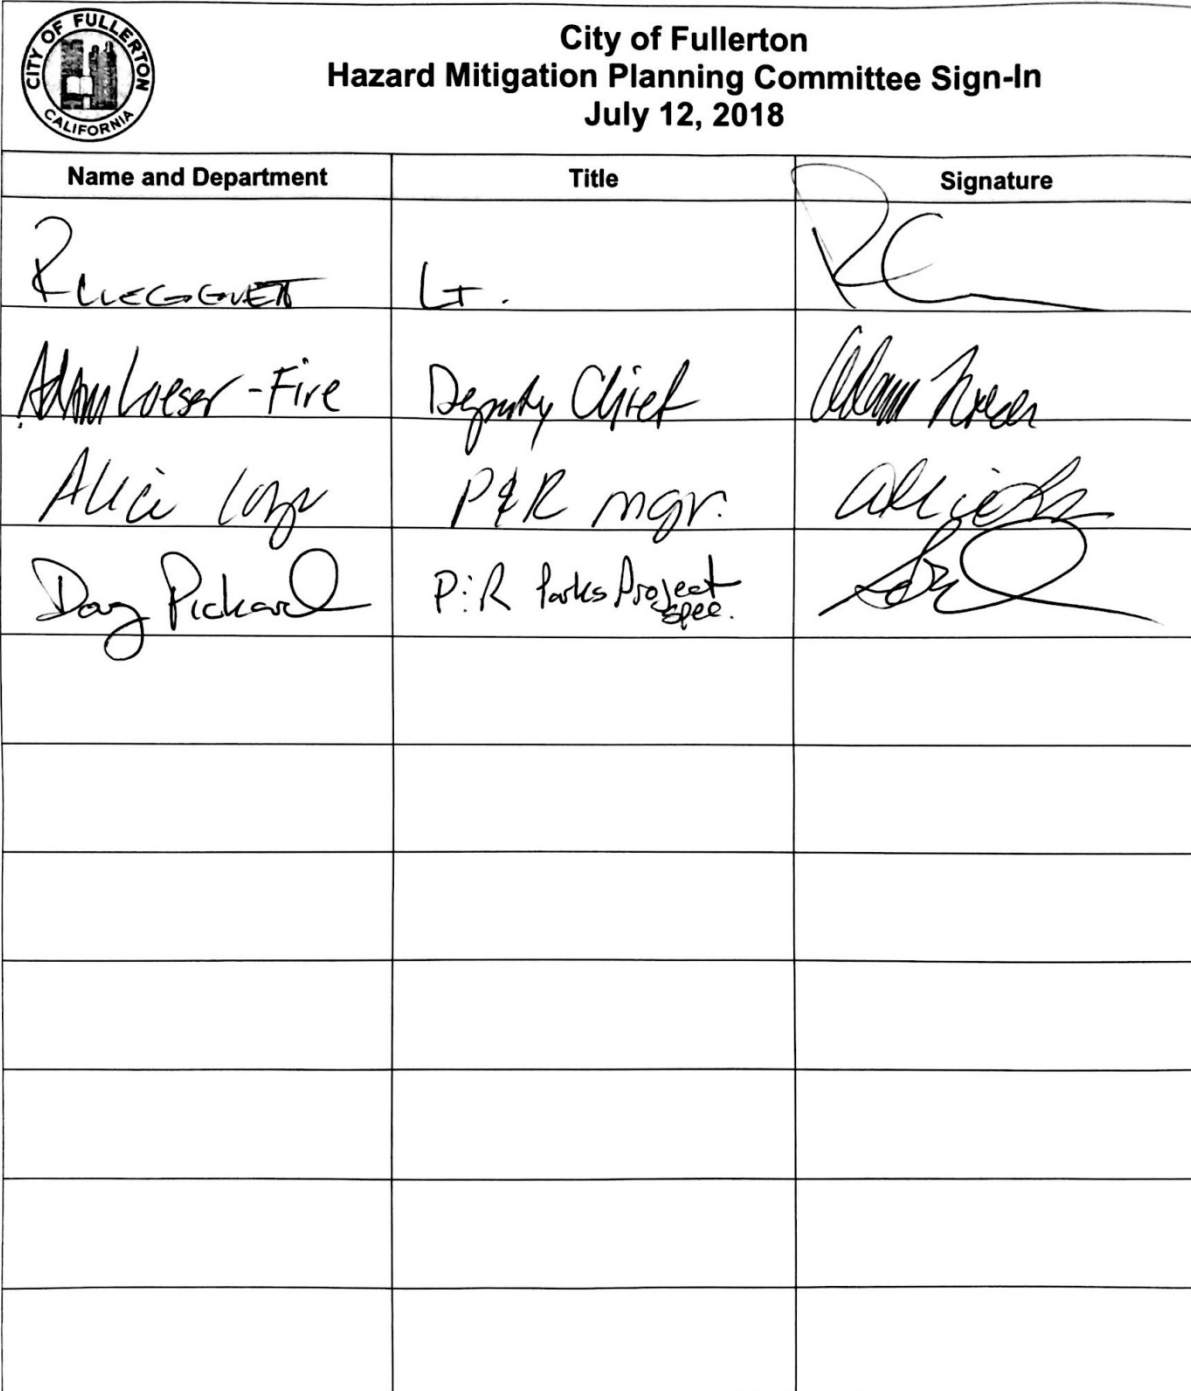 CITY OF FULLERTON
CALIFORNIA
City of Fullerton
Hazard Mitigation Planning Committee Sign-In
July 12, 2018
Name and Department Title Signature
R Lt. RC
Adam Loeser - Fire Deputy Chief Adam Loeser
P&R mgr.
Doug Pickard P:R Parks Project
Spec.